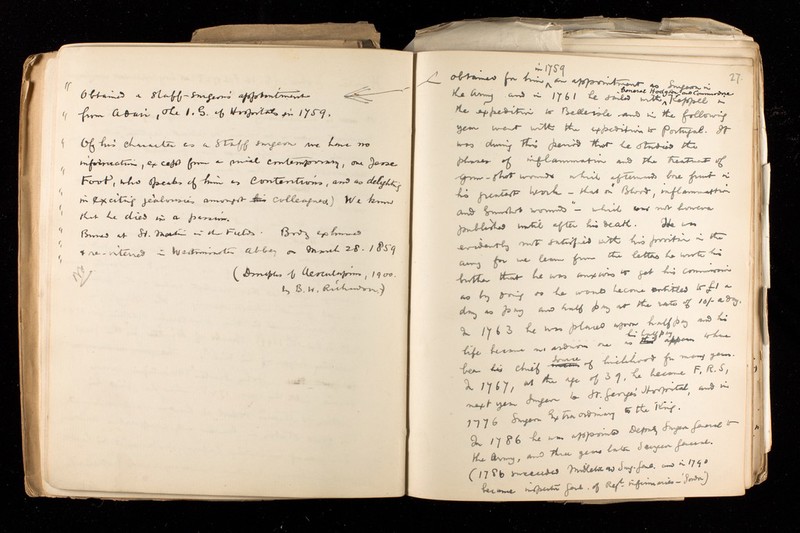 Obtained a Staff-Surgeon's appointment
from Adair, the I. G. of Hospitals in 1759.
Of his character as a Staff Surgeon we have no
information, except from a rival contemporary, one Jesse
Foot, who speaks of him as contentious, and as delighting
in exciting jealousies amongst his colleagues) We know
that he died in a passion.
Buried at St. Martin in the Fields. Body exhumed
& re-interred in Westminster Abbey on March 28. 1859
(Disciples of Aesculapius, 1900.
by B. W. Richardson.)
27.
in 1759
obtained for him an appointment as Surgeon in
the Army and in 1761 he sailed with General Hodgson and Commodore Keppel in
the expedition to Belleisle and in the following
year went with the expedition to Portugal. It
was during this period that he studied the
phases of inflammation and the treatment of
gun-shot wounds which afterwards bore fruit in
his greatest work - that on Blood, inflammation
and Gunshot wounds - which was not however
published until after his death. He was
evidently not satisfied with his position in the
army for we learn from the letters he wrote his
brother that he was anxious to get his commission
as by doing so he would become entitled to £1 a
day as pay and half pay at the rate of 10/- a day.
In 1763 he was placed upon half pay and his
life became an arduous one as his half pay appears to have
been his chief source of livelihood for many years.
In 1767, at the age of 39, he became F.R.S,
next year Surgeon to St. George's Hospital, and in
1776 Surgeon Extraordinary to the King.
In 1786 he was appointed Deputy Surgeon General to
the Army, and three years later Surgeon General.
(1786 succeeded Middleton as Surg. Genl. and in 1790
became inspector Genl. of Regtl. infirmaries -